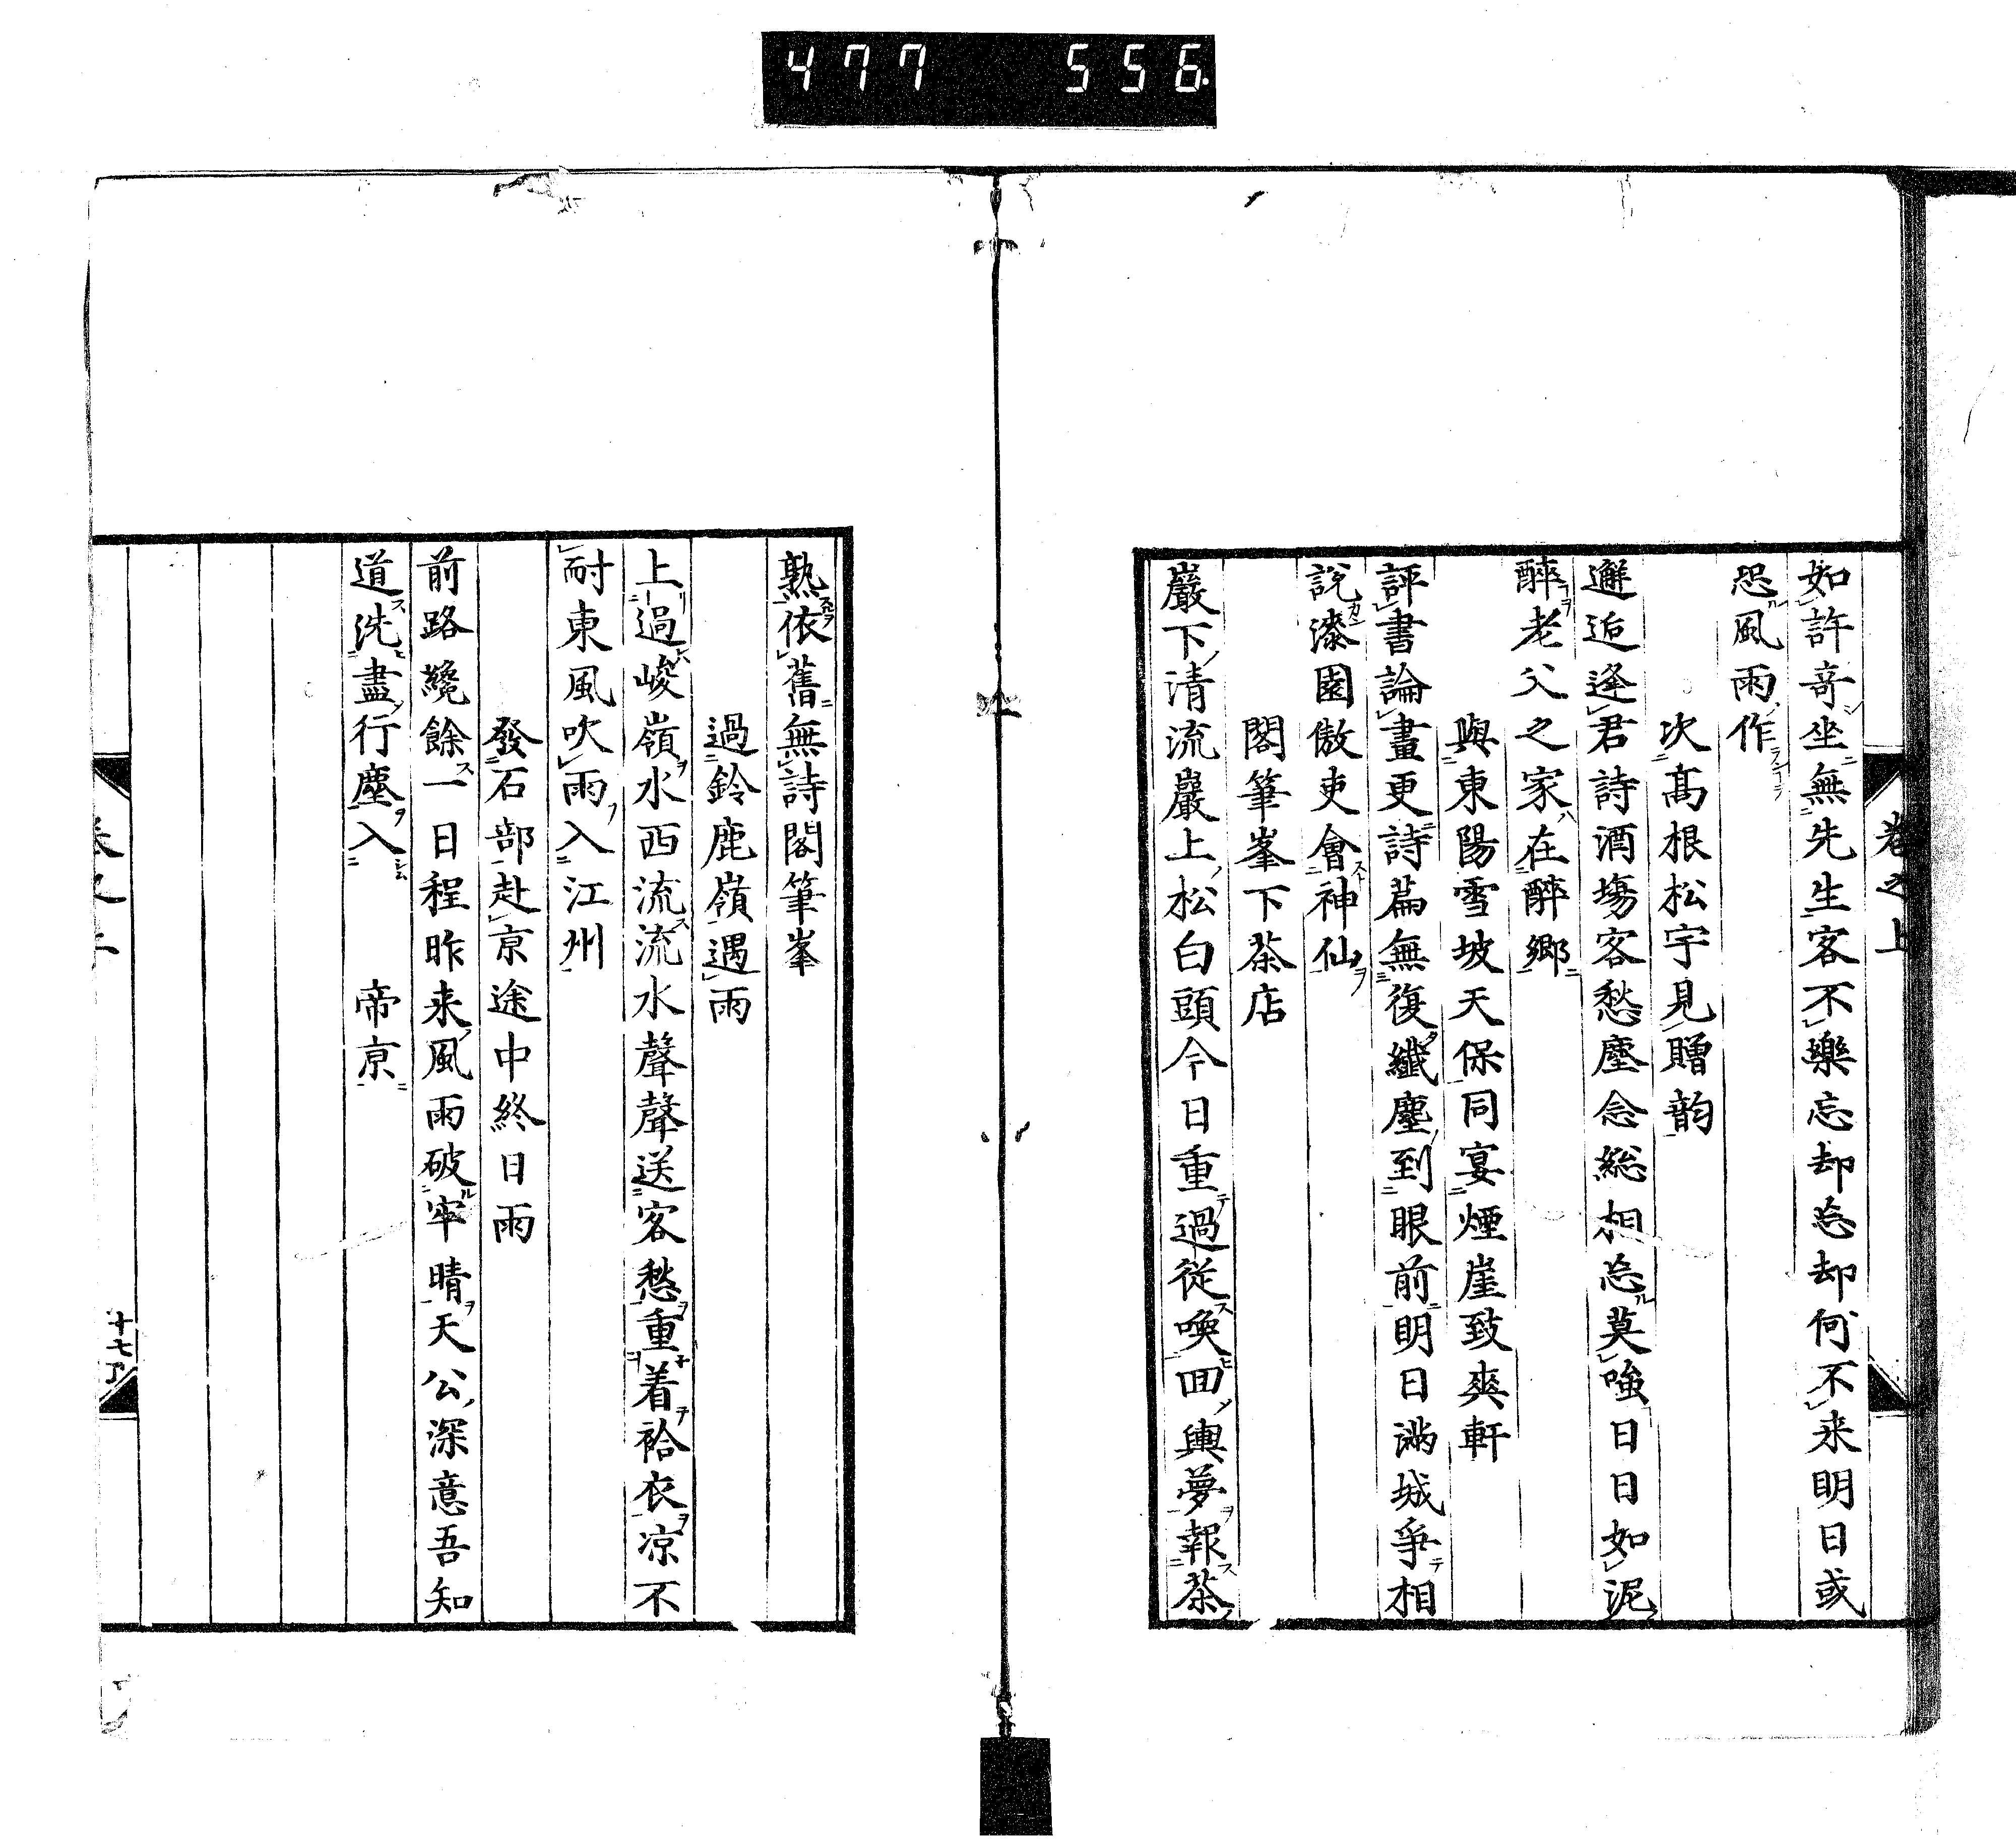 477 556
卷之上
如許奇坐無先生客不樂忘却忘却何不来明日或
恐風雨作
次髙根松宇見贈韵
邂逅逢君詩酒塲客愁塵念総相忘莫嗤日日如泥
醉老父之家在醉郷
與東陽雪坡天保同宴煙崖致爽軒
評書論畫更詩篇無復纖塵到眼前明日満城爭相
說漆園傲吏會神仙
閣筆峯下茶店
巖下清流巖上松白頭今日重過従喚囬輿夢報茶
熟依舊無詩閣筆峯
過鈴鹿嶺遇雨
上過峻嶺水西流流水聲聲送客愁重着袷衣凉不
耐東風吹雨入江州
發石部赴京途中終日雨
前路纔餘一日程昨来風雨破牢晴天公深意吾知
道洗盡行塵入　帝京
十七